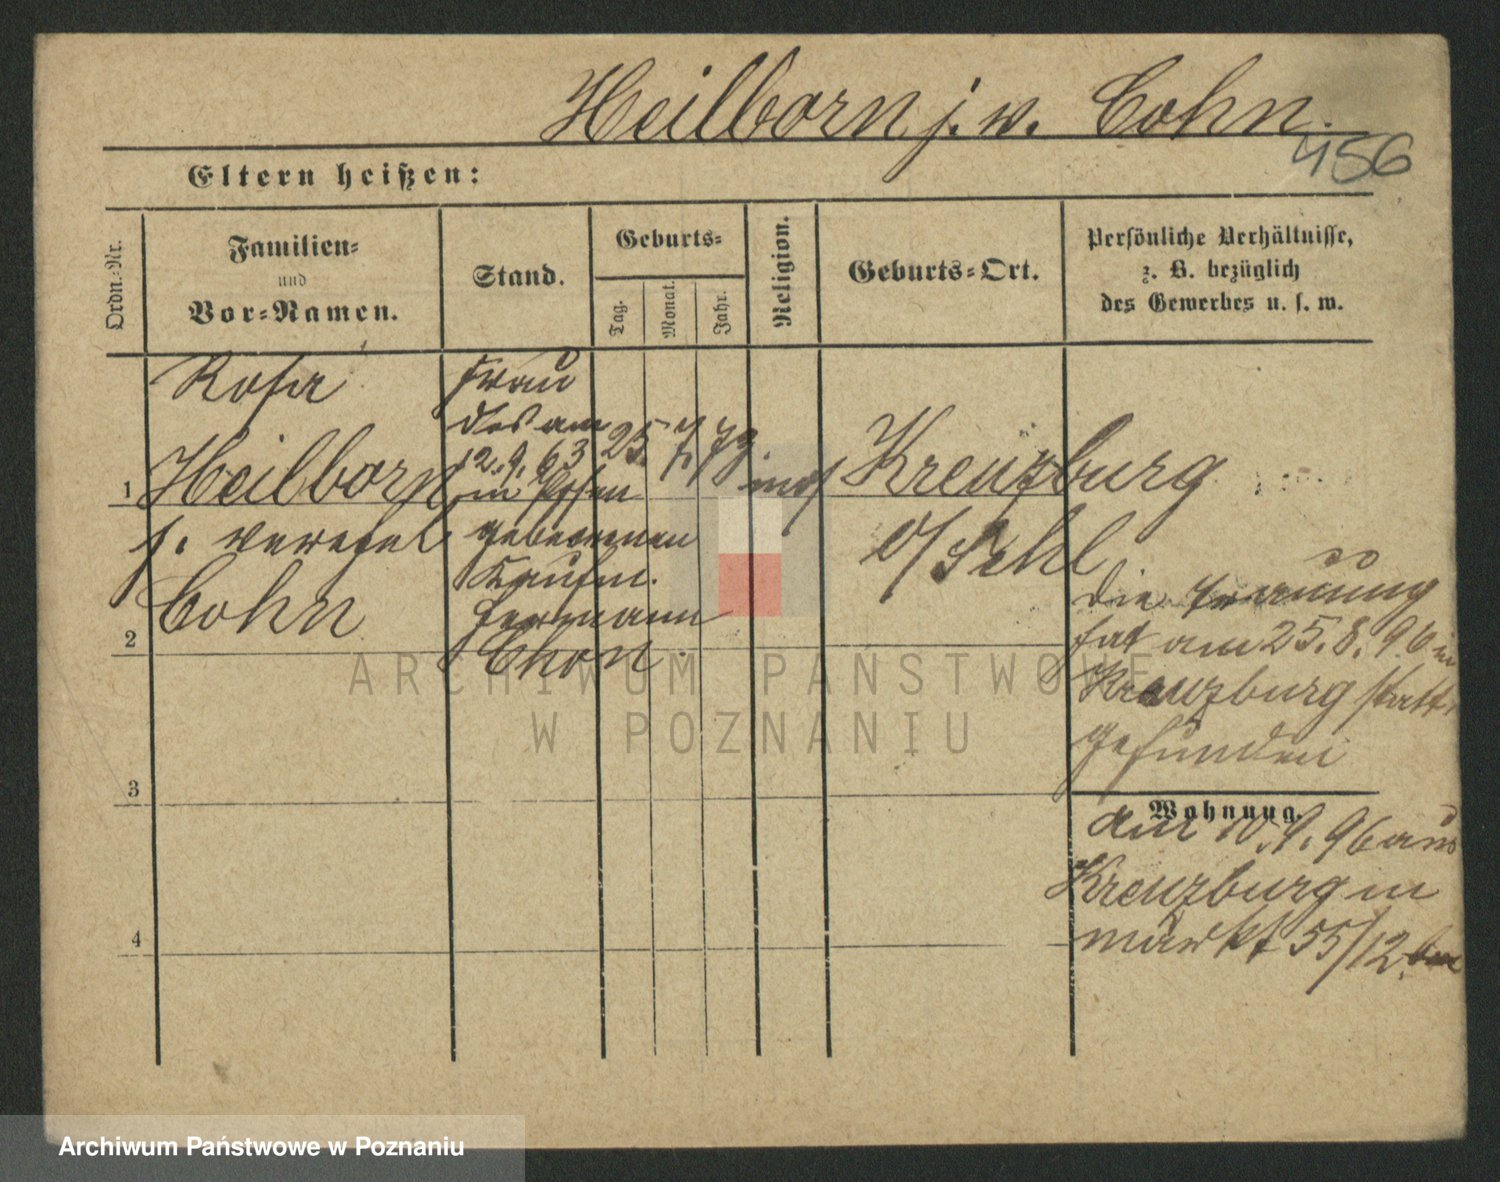 Heilborn j. v. Cohn.
456
Eltern heißen:
Ordn.-Nr.
Familien-
und
Vor-Namen.
Stand.
Geburts-
Tag.
Monat.
Jahr.
Religion.
Geburts-Ort.
Persönliche Verhältnisse,
z. B. bezüglich
des Gewerbes u. s. w.
1
Rosa
Heilborn
j. verehel
Cohn
Frau
des am
12.9.63
in
geborenen
Kaufm.
Hermann
Chon.
25. 7. 78.
mos
Kreuzburg
O/Schl
2
Die Trauung
hat am 25.8.96 in
Kreuzburg statt
gefunden
3
Wohnung.
Am 10.9.96 aus
Kreuzburg in
Markt 55/12.
4
ARCHIWUM PAŃSTWOWE
W POZNANIU
Archiwum Państwowe w Poznaniu